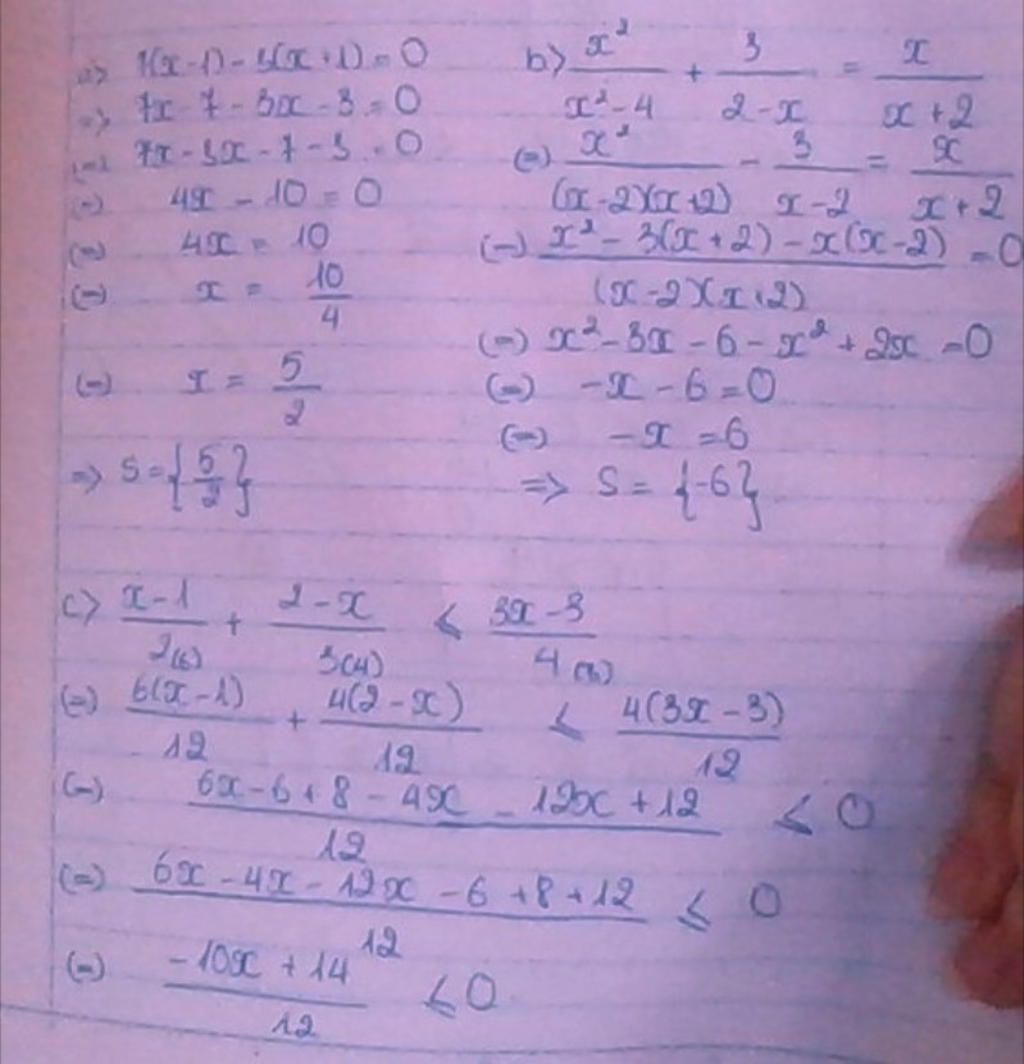 a) 7(x-1) - 3(x+1) = 0
=> 7x - 7 - 3x - 3 = 0
(=) 7x - 3x - 7 - 3 = 0
(=) 4x - 10 = 0
(=) 4x = 10
(=) x = 10/4
(=) x = 5/2
=> S = {5/2}
b) x²/(x²-4) + 3/(2-x) = x/(x+2)
(=) x²/((x-2)(x+2)) - 3/(x-2) = x/(x+2)
(=) (x² - 3(x+2) - x(x-2))/((x-2)(x+2)) = 0
(=) x² - 3x - 6 - x² + 2x = 0
(=) -x - 6 = 0
(=) -x = 6
=> S = {-6}
c) (x-1)/2(6) + (2-x)/3(4) ≤ (3x-3)/4(3)
(=) 6(x-1)/12 + 4(2-x)/12 ≤ 4(3x-3)/12
(=) (6x-6+8-4x-12x+12)/12 ≤ 0
(=) (6x-4x-12x-6+8+12)/12 ≤ 0
(=) (-10x+14)/12 ≤ 0